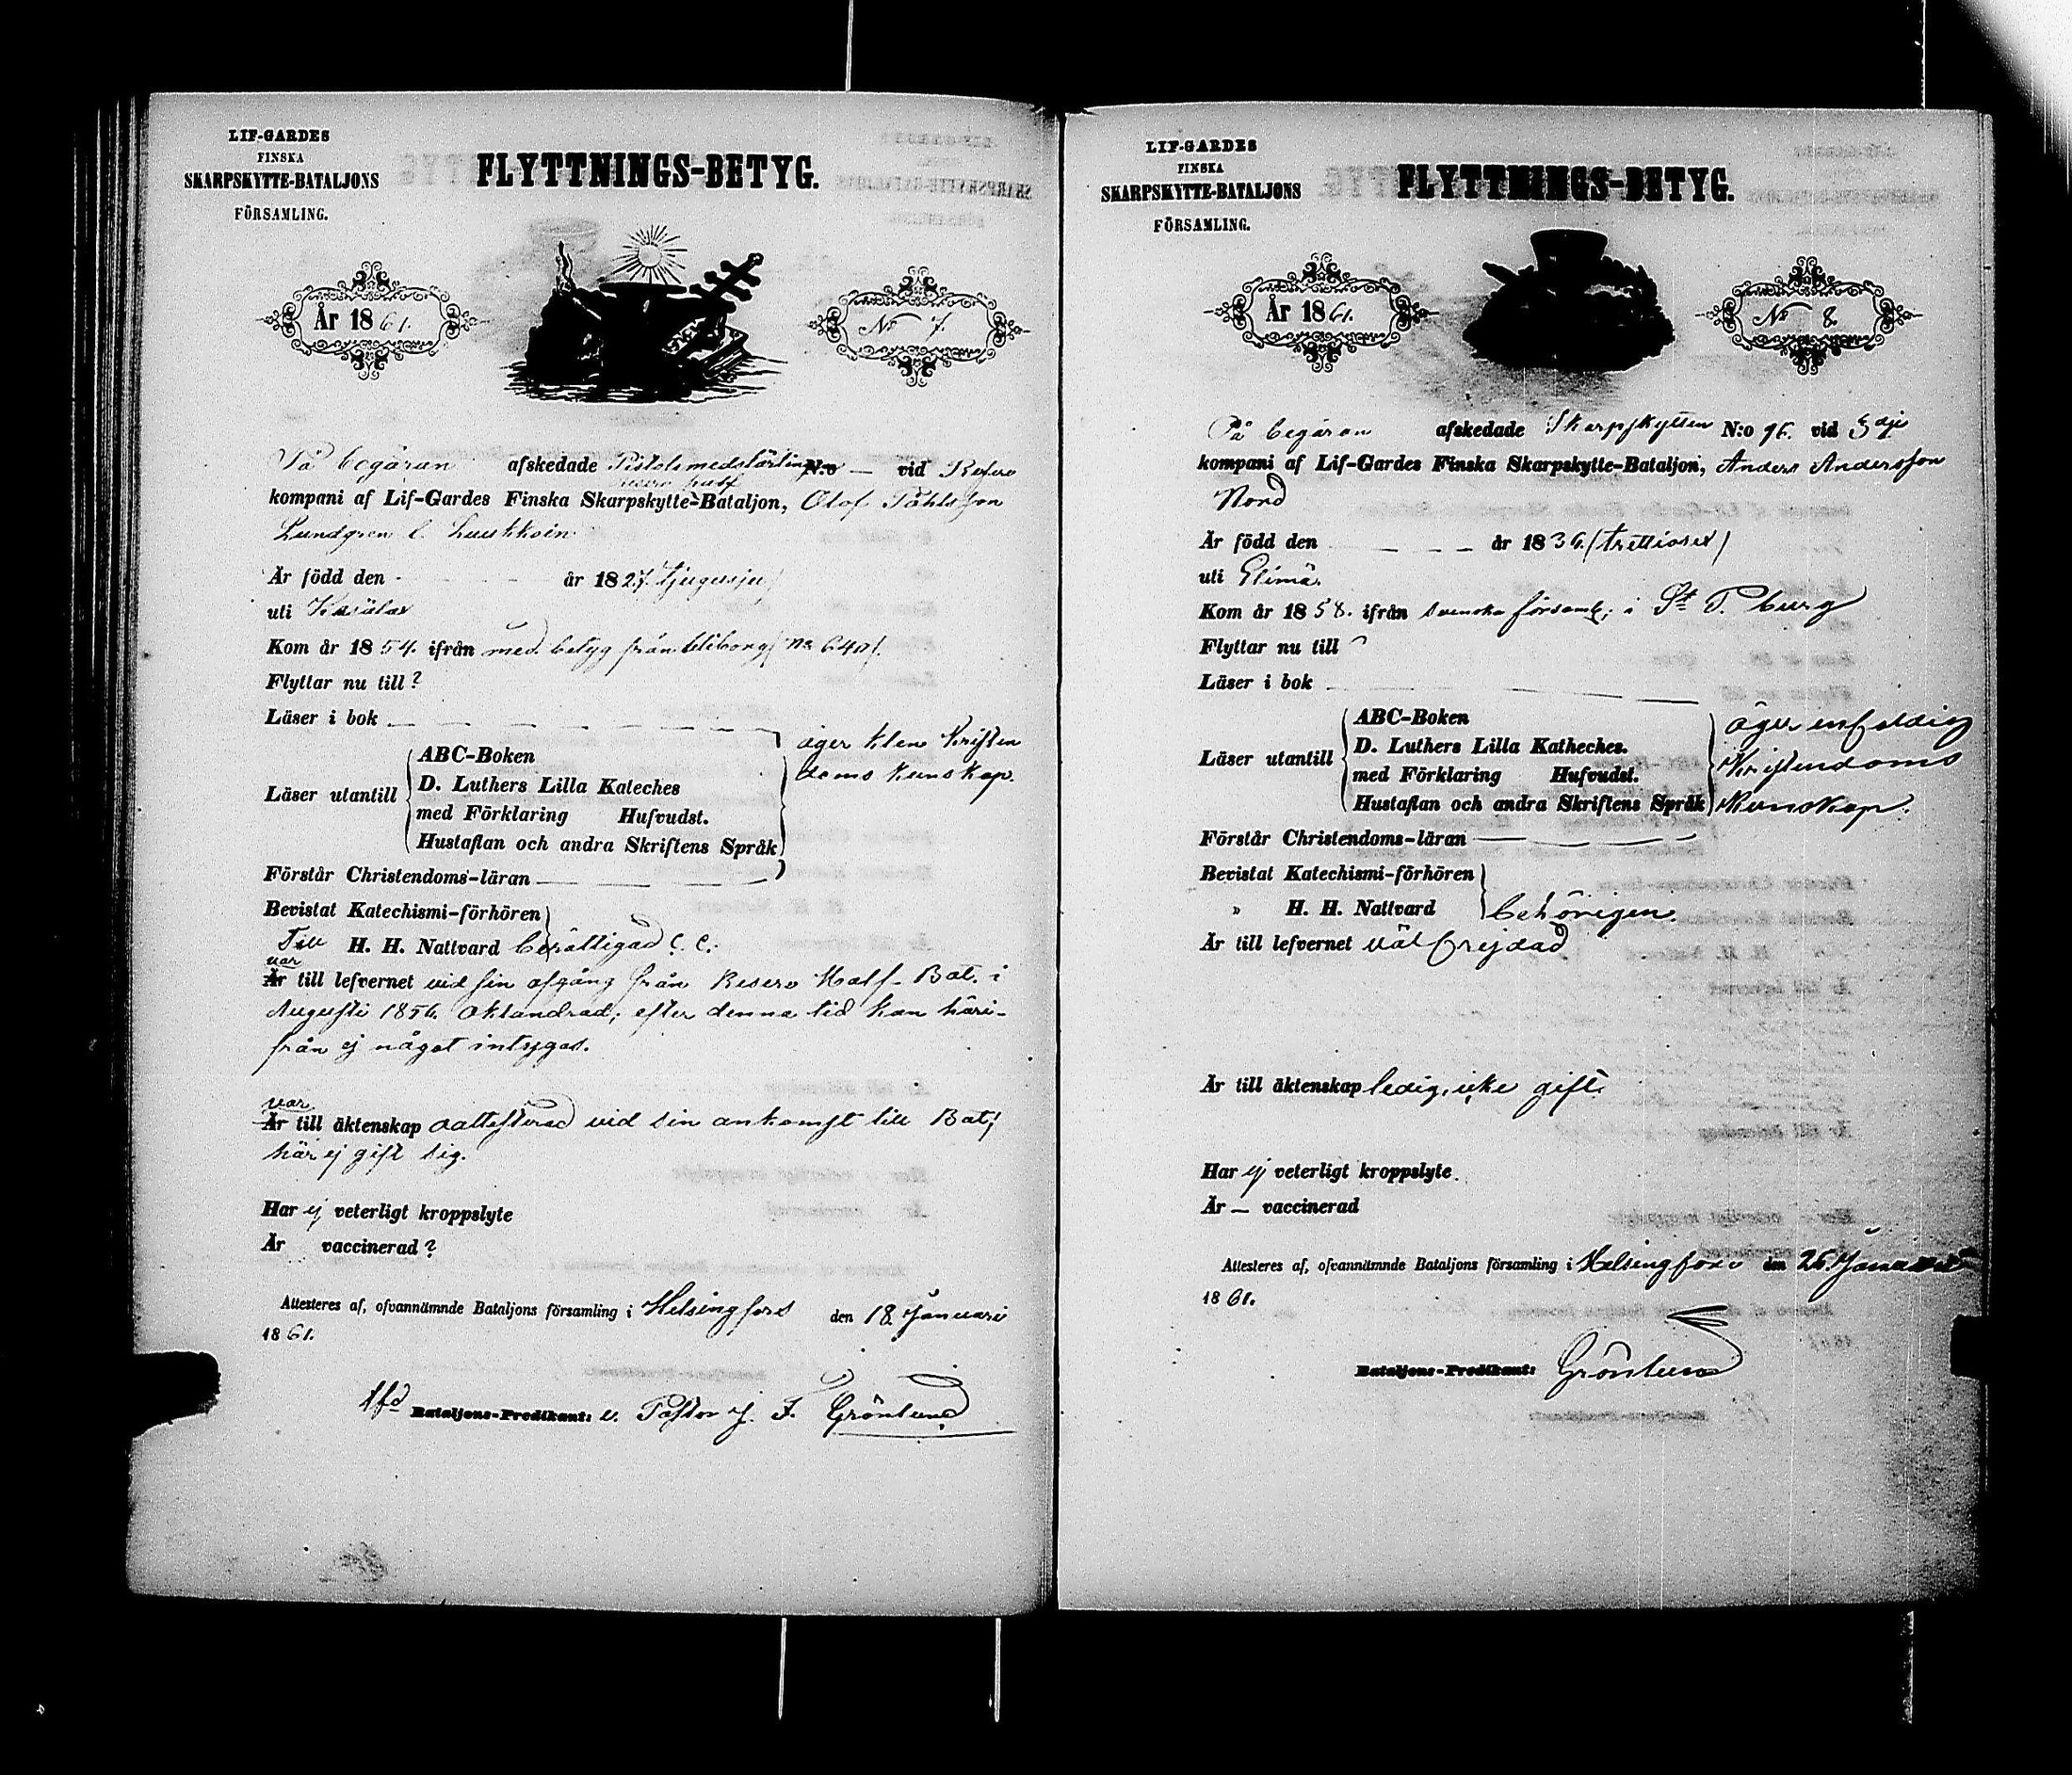 LIF-GARDES
FINSKA
SKARPSKYTTE-BATALJONS
FÖRSAMLING.
FLYTTNINGS-BETYG.
År 1861.
No 7.
På begäran afskedade N:o — vid Reserv
kompani af Lif-Gardes Finska Skarpskytte-Bataljon, Olof Påhlsson
Lundgren l.
Är född den - - - år 1827 (tjugusju)
uti
Kom år 1854. ifrån med betyg från Uleborg (No 640).
Flyttar nu till ?
Läser i bok — — — —
Läser utantill
ABC-Boken
D. Luthers Lilla Kateches
med Förklaring Hufvudst.
Hustaflan och andra Skriftens Språk
äger klen Kristen
doms kunskap.
Förstår Christendoms-läran — — — —
Bevistat Katechismi-förhören
Till H. H. Nattvard berättigad
var
Är till lefvernet vid sin afgång från Reserv Half-Bat. i
Augusti 1856. oklandrad; efter denna tid kan häri-
från ej något intygas.
var
Är till äktenskap oattesterad vid sin ankomst till Bat;
här ej gift sig.
Har ej veterligt kroppslyte
Är vaccinerad ?
Attesteres af, ofvannämnde Bataljons församling i Helsingfors den 18 Januari
1861.
Bataljons-Predikant: v. Pastor J. F. Grönlund
LIF-GARDES
FINSKA
SKARPSKYTTE-BATALJONS
FÖRSAMLING.
FLYTTNINGS-BETYG.
År 1861.
No 8.
På begäran afskedade Skarpskytten N:o 96. vid 3dje
kompani af Lif-Gardes Finska Skarpskytte-Bataljon, Anders Andersson
Nord
Är född den — — — år 1836. (trettiosex)
uti Elimä.
Kom år 1858. ifrån svenska församl; i St P. burg
Flyttar nu till ?
Läser i bok — — —
Läser utantill
ABC-Boken
D. Luthers Lilla Katheches.
med Förklaring Hufvudst.
Hustaflan och andra Skriftens Språk
äger enfaldig
Kristendoms
Kunskap.
Förstår Christendoms-läran — — —
Bevistat Katechismi-förhören
„ H. H. Nattvard
behörigen.
Är till lefvernet väl frejdad
Är till äktenskap ledig, icke gift.
Har ej veterligt kroppslyte.
Är — vaccinerad
Attesteres af, ofvannämnde Bataljons församling i Helsingfors den 25 Januari
1861.
Bataljons-Predikant: Grönlund